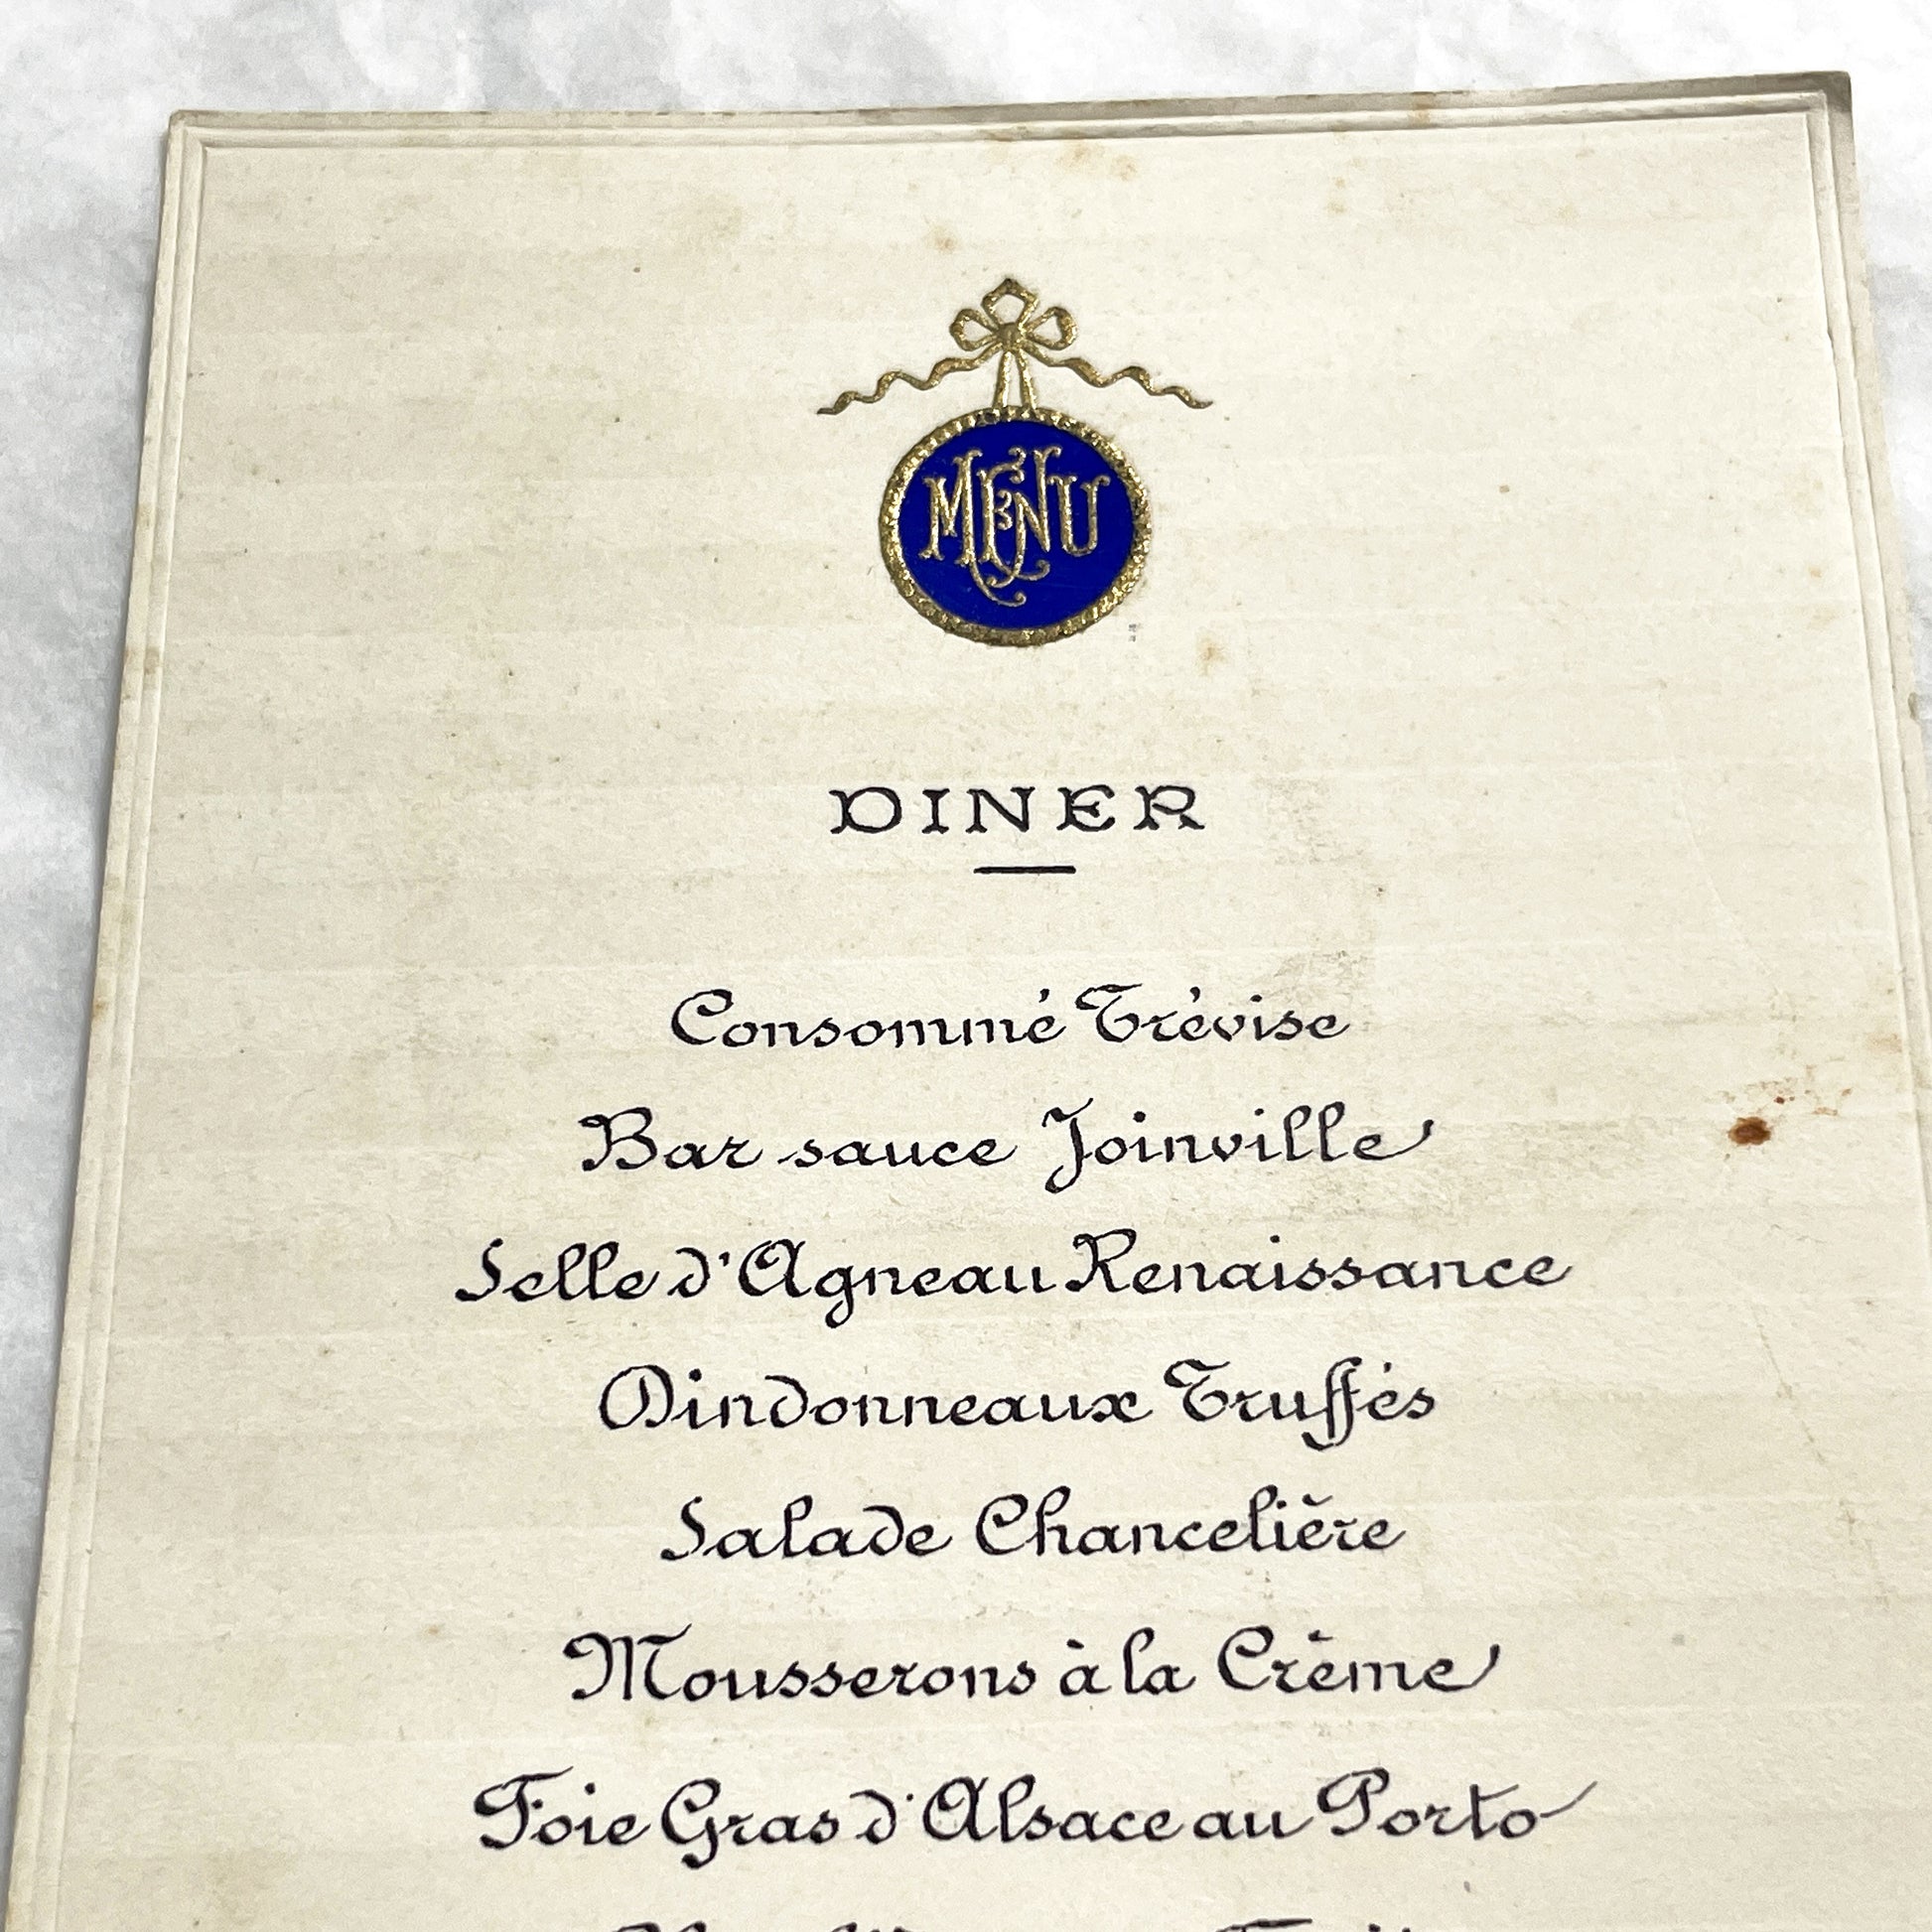 MENU
DINER
Consommé Trévise
Bar sauce Joinville
Selle d'Agneau Renaissance
Dindonneaux Truffés
Salade Chancelière
Mousserons à la Crème
Foie Gras d'Alsace au Porto